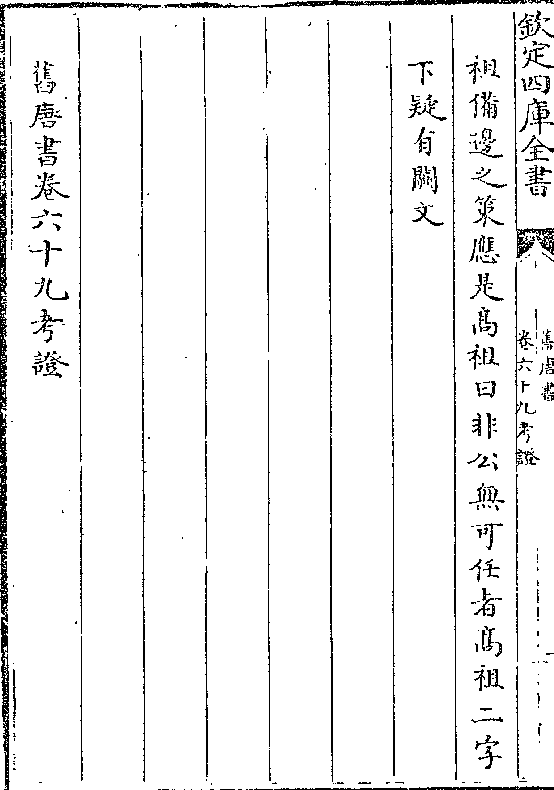 欽定四庫全書
舊唐書
卷六十九考證
祖備邊之策應是髙祖曰非公無可任者髙祖二字
下疑有闕文
舊唐書卷六十九考證